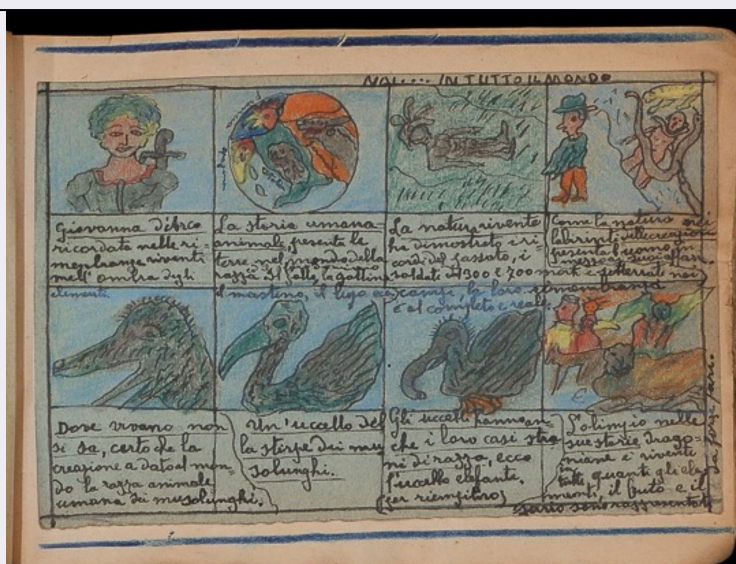 NOI.... IN TUTTO IL MONDO
Giovanna D'Arco
ricordata nelle ri-
membranze riventi
nell'ombra degli
elementi.
La storia umana
animale, presenta le
terre nel mondo della
razza del gallo, la gallina
il mastino, il lupo ecc
La natura rivente
ha dimostrato i ri-
cordi del passato, i
soldati del 300 e 700 morti e sotterrati nei
campi, la loro rimembranza
è al completo e reale.
Come la natura nei
labirinti delle creazioni
presenta l'uomo in
mezzo a suoi affari.
Dove vivano non
si sa, certo che la
creazione a dato al mon-
do la razza animale
umana dei musolunghi.
Un'uccello del
la stirpe dei mu
solunghi.
Gli uccelli hanno an-
che i loro casi stra
ni di razza, ecco
l'uccello elefante.
per riempitivo
L'olimpio nelle
sue storie drago=
niane è rivente
in tutti quanti gli ele
menti, il fiuto e il
sono rappresentati